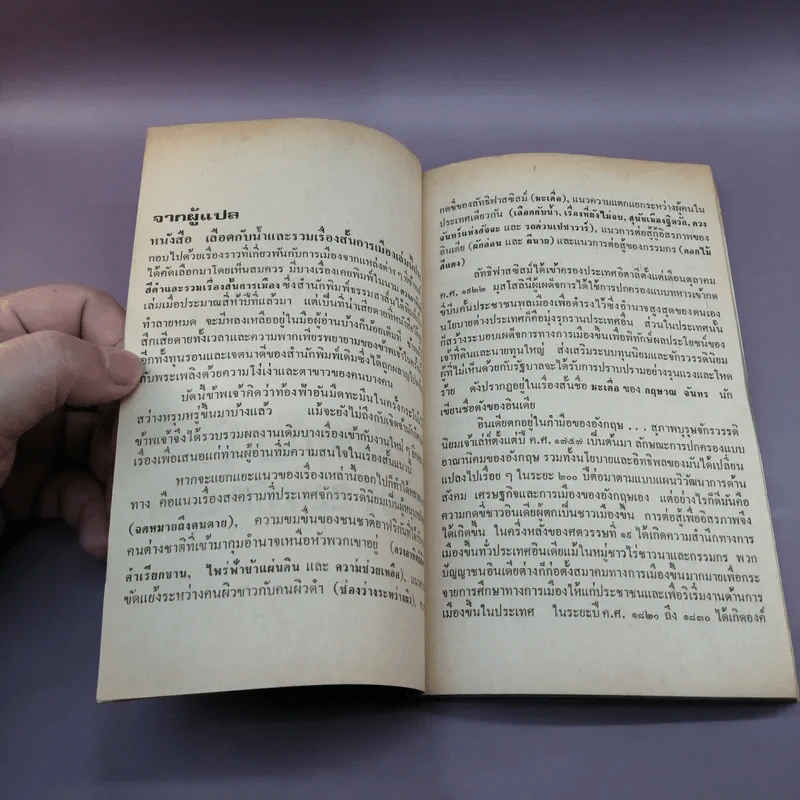 จากผู้แปล
หนังสือ เลือดกับน้ำและรวมเรื่องสั้นการเมืองเล่มนี้
กอบไปด้วยเรื่องราวที่เกี่ยวพันกับการเมืองจากแหล่งต่าง ๆ
ได้คัดเลือกมาโดยเห็นสมควร มีบางเรื่องเคยพิมพ์ในนาม
สีดำและรวมเรื่องสั้นการเมือง ซึ่งสำนักพิมพ์ธรรมสาส์น
เล่มเมื่อประมาณสี่ห้าปีที่แล้วมา แต่เป็นที่น่าเสียดายที่หนังสือ
ทำลายหมด จะมีหลงเหลืออยู่ในมือผู้อ่านบ้างก็น้อยเต็มที
สึกเสียดายทั้งเวลาและความพากเพียรพยายามของข้าพเจ้า
อีกทั้งทุนรอนและเจตนาดีของสำนักพิมพ์เดิมซึ่งได้ถูก
กับพระเพลิงด้วยความโง่เง่าและตาขาวของคนบางคน
บัดนี้ข้าพเจ้าคิดว่าท้องฟ้าอันมืดทะมึนในครั้ง
สว่างหรุบหรู่ขึ้นมาบ้างแล้ว แม้จะยังไม่ถึงกับเจิดจ้า
ข้าพเจ้าจึงได้รวบรวมผลงานเดิมบางเรื่องเข้ากับงานใหม่ ๆ
เรื่องเพื่อเสนอแก่ท่านผู้อ่านที่มีความสนใจในเรื่องสั้นแนวนี้
หากจะแยกแยะแนวของเรื่องเหล่านี้ออกไปก็ทำได้
ทาง คือแนวเรื่องสงครามที่ประเทศจักรวรรดินิยมเป็นผู้
(จดหมายถึงคนตาย), ความขมขื่นของชนชาติอาฟริกันที่
คนต่างชาติที่เข้ามากุมอำนาจเหนือหัวพวกเขาอยู่
คำเรียกขาน, ไพร่ฟ้าข้าแผ่นดิน และ ความช่วยเหลือ),
ขัดแย้งระหว่างคนผิวขาวกับคนผิวดำ (ช่องว่างระหว่างผิว),
กดขี่ของลัทธิฟาสซิสม์ (มะเดื่อ), แนวความแตกแยกระหว่างผู้คนใน
ประเทศเดียวกัน (เลือดกับน้ำ, เรื่องที่ยังไม่จบ, สุนัขเมืองฐิตวัล, ดวง
จันทร์แห่งสัจจะ และ รถด่วนเปชาวาร์), แนวการต่อสู้กู้อิสรภาพของ
อินเดีย (ผักอ่อน และ ผีนาย) และแนวการต่อสู้ของกรรมกร (ดอกไม้
สีแดง)
ลัทธิฟาสซิสม์ได้เข้าครองประเทศอิตาลีตั้งแต่เดือนตุลาคม
ค.ศ. ๑๙๒๒ มุสโสลินีผู้เผด็จการได้ใช้การปกครองแบบทหารเข้ากด
ขี่บีบคั้นประชาชนพลเมืองเพื่อดำรงไว้ซึ่งอำนาจสูงสุดของตนเอง
นโยบายต่างประเทศก็คือมุ่งรุกรานประเทศอื่น ส่วนในประเทศนั้น
ก็สร้างระบอบเผด็จการทางการเมืองขึ้นเพื่อพิทักษ์ผลประโยชน์ของ
เจ้าที่ดินและนายทุนใหญ่ ส่งเสริมระบบทุนนิยมและจักรวรรดินิยม
ผู้ที่ไม่เห็นด้วยกับรัฐบาลจะได้รับการปราบปรามอย่างรุนแรงและโหด
ร้าย ดังปรากฏอยู่ในเรื่องสั้นชื่อ มะเดื่อ ของ กฤษาณ จันทร นัก
เขียนชื่อดังของอินเดีย
อินเดียตกอยู่ในกำมือของอังกฤษ . . . สุภาพบุรุษจักรวรรดิ
นิยมเจ้าเล่ห์ตั้งแต่ปี ค.ศ. ๑๗๕๗ เป็นต้นมา ลักษณะการปกครองแบบ
อาณานิคมของอังกฤษ รวมทั้งนโยบายและอิทธิพลของมันได้เปลี่ยน
แปลงไปเรื่อย ๆ ในระยะ ๒๐๐ ปีต่อมาตามแบบแผนวิวัฒนาการด้าน
สังคม เศรษฐกิจและการเมืองของอังกฤษเอง แต่อย่างไรก็ดีมันคือ
ความกดขี่ชาวอินเดียผู้ตกเป็นชาวเมืองขึ้น การต่อสู้เพื่ออิสรภาพจึง
ได้เกิดขึ้น ในครึ่งหลังของศตวรรษที่ ๑๙ ได้เกิดความสำนึกทางการ
เมืองขึ้นทั่วประเทศอินเดียแม้ในหมู่ชาวไร่ชาวนาและกรรมกร พวก
ปัญญาชนอินเดียต่างก็ก่อตั้งสมาคมทางการเมืองขึ้นมากมายเพื่อกระ
จายการศึกษาทางการเมืองให้แก่ประชาชนและเพื่อริเริ่มงานด้านการ
เมืองขึ้นในประเทศ ในระยะปี ค.ศ. ๑๘๒๐ ถึง ๑๘๓๐ ได้เกิดองค์